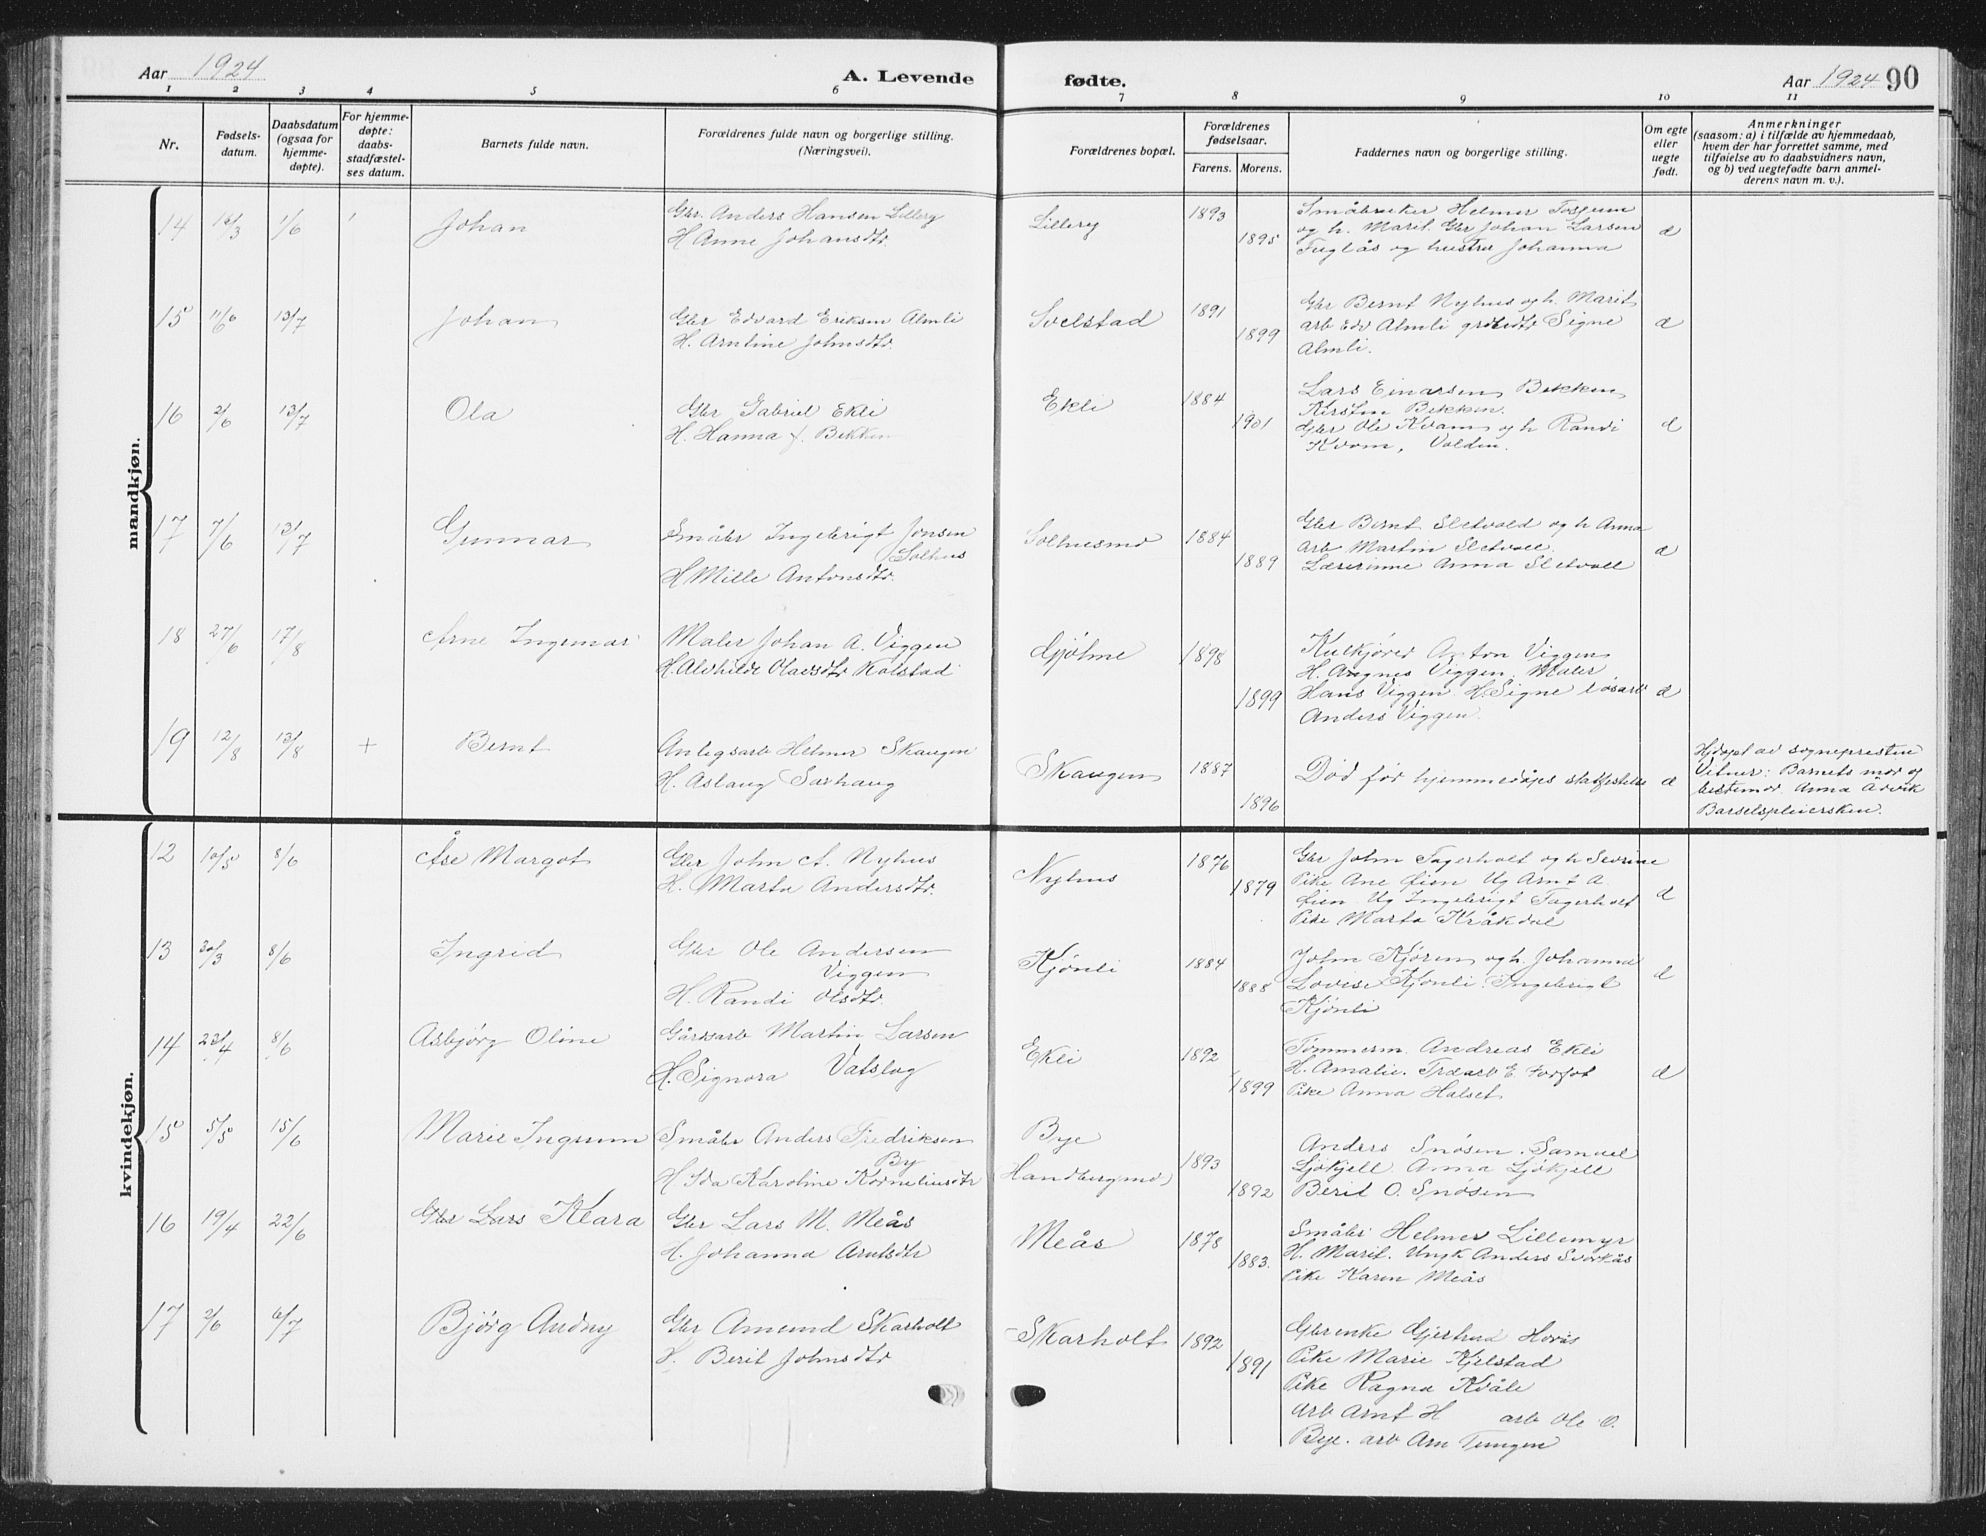 Aar 1924
A. Levende fødte.
Aar 1924 90
1 2 3 4 5 6 7 8 9 10 11
Nr.
Fødsels-
datum.
Daabsdatum
(ogsaa for
hjemme-
døpte).
For hjemme-
døpte:
daabs-
stadfæstel-
ses datum.
Barnets fulde navn.
Forældrenes fulde navn og borgerlige stilling.
(Næringsvei).
Forældrenes bopæl.
Forældrenes
fødselsaar.
Farens. Morens.
Faddernes navn og borgerlige stilling.
Om egte
eller
uegte
født.
Anmerkninger
(saasom: a) i tilfælde av hjemmedaab,
hvem der har forrettet samme, med
tilføielse av to daabsvidners navn,
og b) ved uegtefødte barn anmel-
derens navn m. v.).
mandkjøn.
14 1/6 Johan
Gbr. Anders Hansen Lillery
H. Anne Johansdtr.
Lillery 1893 1895
Småbruker Helmer Tosgrun
og h. Marit. Gbr Johan Larsen
Fuglås og hustru Johanna
15 11/6 13/7 Johan
Gbr Edvard Eriksen Almli
H. Arntine Johnsdtr.
Svelstad 1891 1899
Gbr Bernt Nyhus og h. Marit
arb Edv Almli Signe
Almli.
16 2/6 13/7 Ola
Gbr Gabriel Ekli
H. Hanna Bekken
Ekli 1884 1901
Lars Einarsen Bekken
Kirstin Bekken.
Gbr Ole Kvam og h Randi
Kvam, Volden.
17 7/6 13/7 Gunnar
Småbr Ingebrigt Jonsen
Solhus
H Mille Antonsdtr.
Solhusmo 1884 1889
Gbr Bernt Sletvold og h Anna
arb Martin Sletvoll.
Lærerinne Anna Sletvoll
18 27/6 17/8 Arne Ingemar
Maler Johan A. Viggen
H. Alvhilde Olavsdtr Kolstad
Gjölme 1898 1899
Kulkjörer Anton Viggen
H. Angnes Viggen. Maler
Hans Viggen. H. Signe løsarb
Anders Viggen.
19 12/8 13/8 + Bernt
Anlegsarb Helmer Skaugen
H. Aslaug Sarhaug
Skaugen 1887 1896
Død før hjemmedåpes statfestelse
Hjdøpt av sognepresten
Vitner: Barnets mor og
bestemor. Anna Årvik
Barselspleiersken.
kvindekjøn.
12 10/5 8/6 Åse Margot
Gbr John A. Nyhus
H. Marta Andersdtr.
Nyhus 1876 1879
Gbr John Fagerholt og h Sevrine
Pike Ane Øien Ug Arnt A
Øien. Ug Ingebrigt Fagerholt
Pike Marta Kråkdal
13 30/3 8/6 Ingrid
Gbr Ole Andersen
Viggen
H. Randi Olsdtr.
Kjönli 1884 1888
John Kjören og h. Johanna
Lovise Kjönli. Ingebrigt
Kjönli
14 22/4 8/6 Asbjørg Oline
Gårdsarb Martin Larsen
H. Signora Vatslog
Ekli 1892 1899
Tömmerm. Andreas Ekli
H. Amalie. Træarb E. Forfot
Pike Anna Halset
15 5/5 15/6 Marie Ingrunn
Småbr Anders Fredriksen
By
H. Ida Karoline Korneliusdtr
Bye
Handbergmo 1893 1892
Anders Snösen. Samuel
Ljökjell Anna Ljökjell
Berit O. Snösen
16 19/4 22/6 Gbr Lars Klara
Gbr Lars M. Meås
H. Johanna Arntsdtr
Meås 1878 1883.
Småbr Helmer Lillemyr
H. Marit. Ungk Anders Svorkås
Pike Karen Meås
17 2/6 6/7 Bjørg Andny
Gbr Amund Skarholt
H. Berit Johnsdtr
Skarholt 1892 1891
Gbrenke Gjertrud Hovås
Pike Marie Kjelstad
Pike Ragna Kvåle
Arb Arnt H arb Ole O.
Bye. arb Arn Tungen